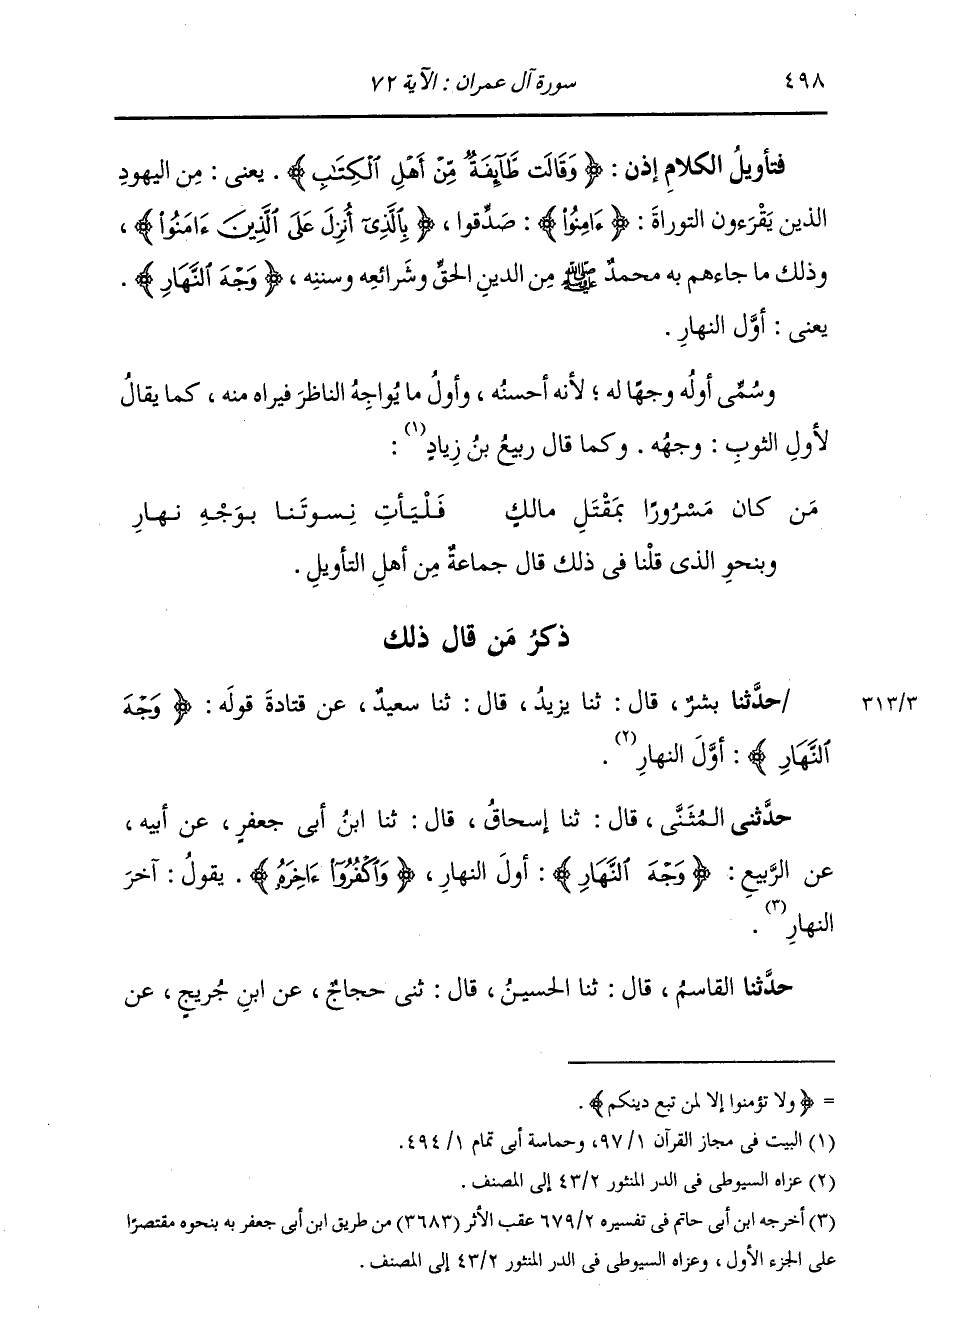 ٤٩٨
سورة آل عمران : الآية ٧٢
فتأويلُ الكلامِ إذن : ﴿ وَقَالَت طَّآئِفَةٌ مِّنْ أَهْلِ ٱلْكِتَٰبِ ﴾ . يعنى : مِن اليهودِ
الذين يَقْرَءون التوراةَ : ﴿ ءَامِنُوا۟ ﴾ : صَدِّقوا ، ﴿ بِٱلَّذِىٓ أُنزِلَ عَلَى ٱلَّذِينَ ءَامَنُوا۟ ﴾ ،
وذلك ما جاءهم به محمدٌ ﷺ مِن الدينِ الحقِّ وشَرائعِه وسننِه ، ﴿ وَجْهَ ٱلنَّهَارِ ﴾ .
يعنى : أوَّل النهارِ .
وسُمِّى أولُه وجهًا له ؛ لأنه أحسنُه ، وأولُ ما يُواجِهُ الناظرَ فيراه منه ، كما يقالُ
لأولِ الثوبِ : وجهُه . وكما قال ربيعُ بنُ زِيادٍ(١) :
مَن كان مَسْرُورًا بمَقْتَلِ مالكٍ فَلْيَأتِ نِسوتَنا بوَجْهِ نهارِ
وبنحوِ الذى قلْنا فى ذلك قال جماعةٌ مِن أهلِ التأويلِ .
ذكرُ مَن قال ذلك
/حدَّثنا بشرٌ ، قال : ثنا يزيدُ ، قال : ثنا سعيدٌ ، عن قتادةَ قولَه : ﴿ وَجْهَ
٣١٣/٣
ٱلنَّهَارِ ﴾ : أوَّلَ النهارِ(٢) .
حدَّثنى المُثَنَّى ، قال : ثنا إسحاقُ ، قال : ثنا ابنُ أبى جعفرٍ ، عن أبيه ،
عن الرَّبيعِ : ﴿ وَجْهَ ٱلنَّهَارِ ﴾ : أولَ النهارِ ، ﴿ وَٱكْفُرُوٓا۟ ءَاخِرَهُ ﴾ . يقولُ : آخرَ
النهارِ(٣) .
حدَّثنا القاسمُ ، قال : ثنا الحسينُ ، قال : ثنى حجاجٌ ، عن ابنِ جُريجٍ ، عن
= ﴿ ولا تؤمنوا إلا لمن تبع دينكم ﴾ .
(١) البيت فى مجاز القرآن ٩٧/١، وحماسة أبى تمام ٤٩٤/١.
(٢) عزاه السيوطى فى الدر المنثور ٤٣/٢ إلى المصنف .
(٣) أخرجه ابن أبى حاتم فى تفسيره ٦٧٩/٢ عقب الأثر (٣٦٨٣) من طريق ابن أبى جعفر به بنحوه مقتصرًا
على الجزء الأول ، وعزاه السيوطى فى الدر المنثور ٤٣/٢ إلى المصنف .